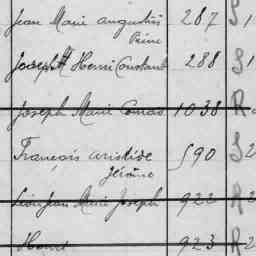 Jean Marie Augustin 287 S 1
Pierre
Joseph Henri Constant 288 S 1
Joseph Marie 1038 R
François Aristide 590 S 2
Jérôme
Léon Jean Marie Joseph 922 R 2
Henri 923 R 2